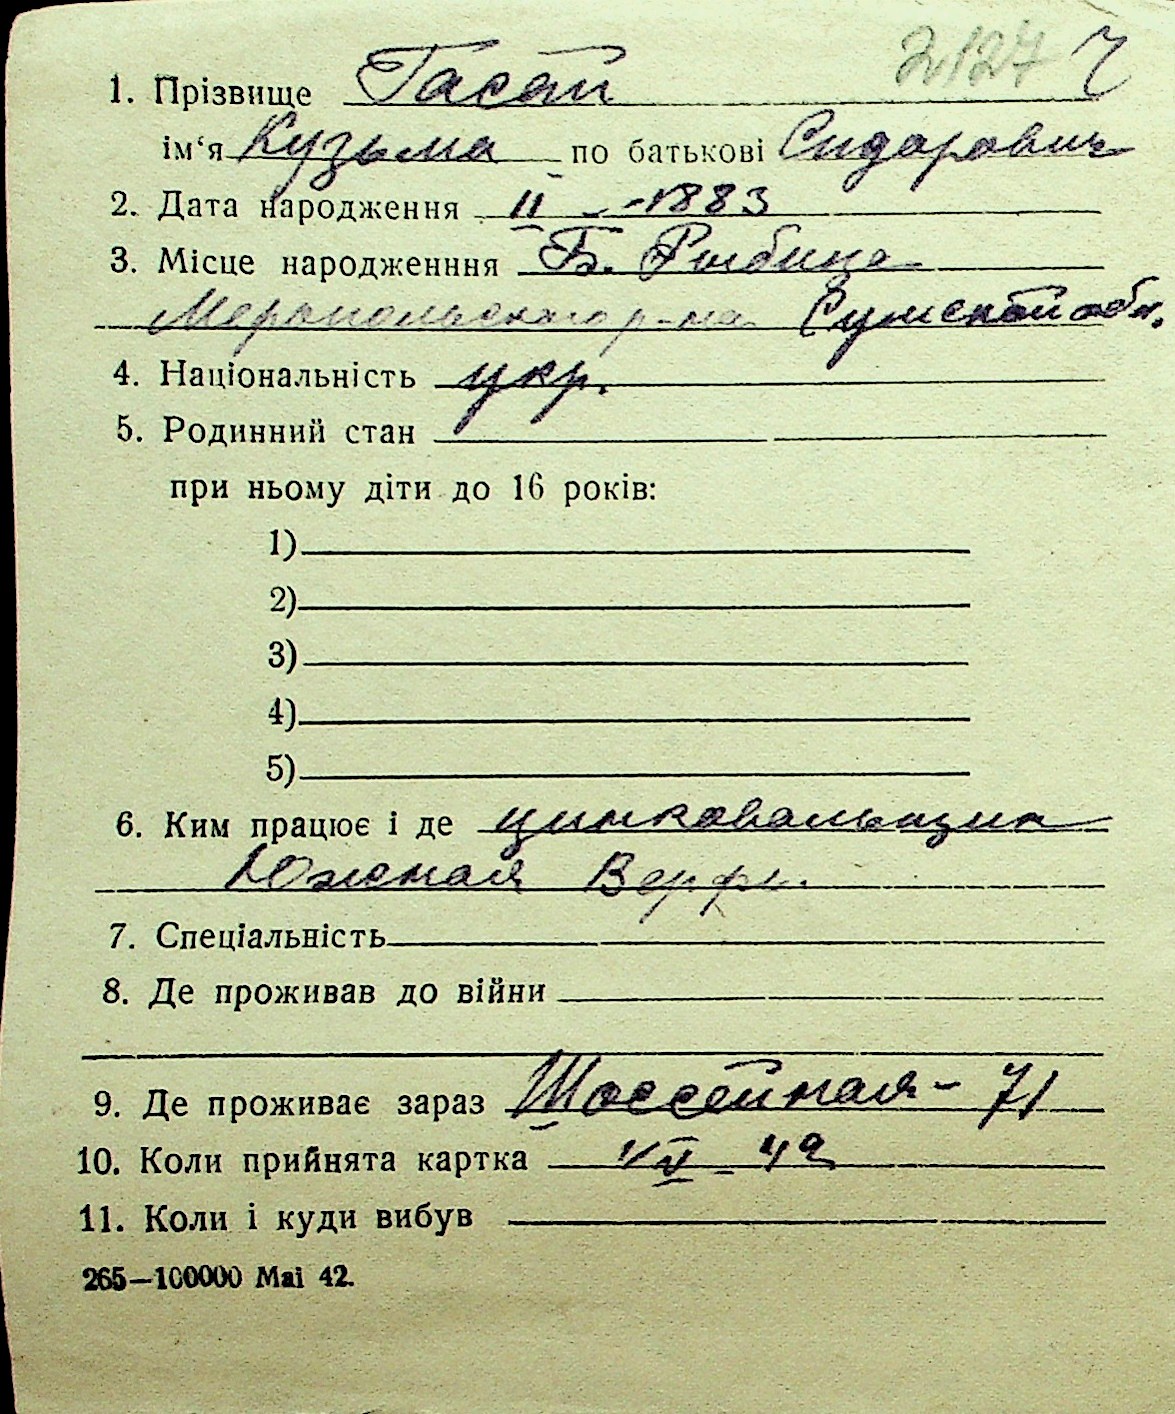 2127 Ч
1. Прізвище Гасан
ім‘я Кузьма по батькові Сидарович
2. Дата народження II - 1883
3. Місце народженння Б. Рыбица
Меропольского р-на Сумской обл.
4. Національність укр.
5. Родинний стан
при ньому діти до 16 років:
1)
2)
3)
4)
5)
6. Ким працює і де цинковальщик
Южная Верфь.
7. Спеціальність
8. Де проживав до війни
9. Де проживає зараз Шоссейная - 71
10. Коли прийнята картка 42
11. Коли і куди вибув
265—100000 Mai 42.